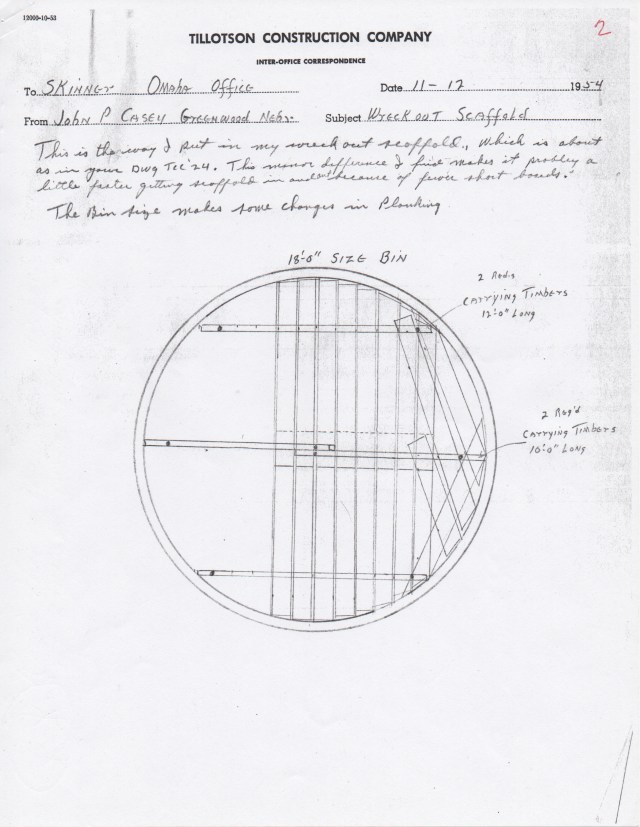 12000-10-53
2
TILLOTSON CONSTRUCTION COMPANY
INTER-OFFICE CORRESPONDENCE
To SKINNER OMAHA OFFICE Date 11-12 1954
From John P CASEY GREENWOOD NEBR Subject WRECK OUT SCAFFOLD
This is the way I put in my wreck out scaffold, which is about
as in your DWG TCC '24. This manor difference I find makes it probley a
little faster getting scaffold in and out because of fewer short boards.
The Bin size makes some changes in Planking
18'-0" SIZE BIN
2 Req'd
CARRYING TIMBERS
12'-0" LONG
2 Req'd
CARRYING TIMBERS
10'-0" LONG